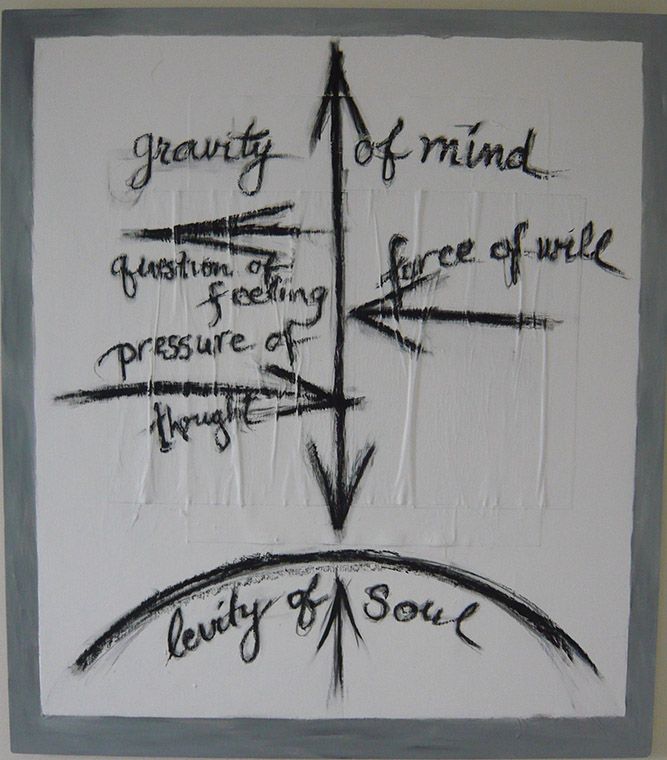 gravity of mind
question of
feeling
force of will
pressure of
thought
levity of soul